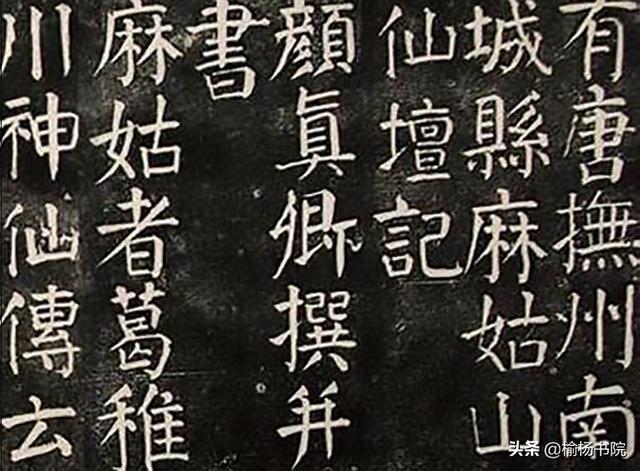 有唐撫州南
城縣麻姑山
仙壇記
顏真卿撰并
書
麻姑者葛稚
川神仙傳云
头条 @榆杨书院